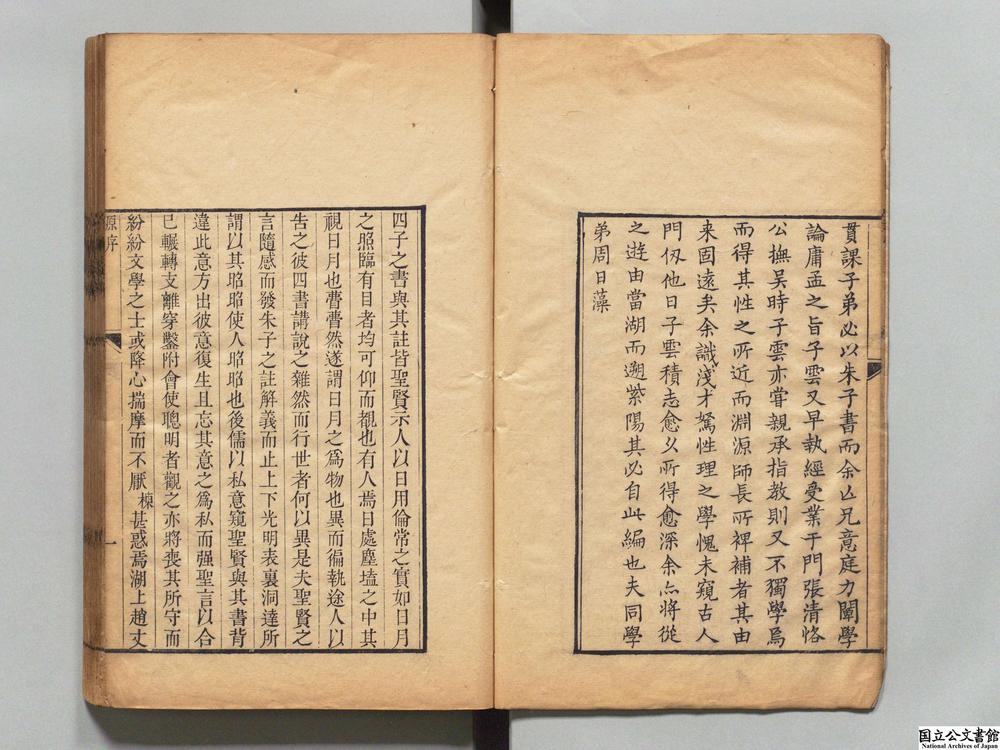 貫課子弟必以朱子書而余亡兄意庭力闡學
論庸孟之旨子雲又早執經受業于門張清恪
公撫吴時子雲亦嘗親承指教則又不獨學焉
而得其性之所近而淵源師長所裨補者其由
来固遠矣余識淺才駑性理之學愧未窺古人
門仞他日子雲積志愈久所得愈深余亦將從
之遊由當湖而遡紫陽其必自此編也夫同學
弟周日藻
四子之書與其註皆聖賢示人以日用倫常之實如日月
之照臨有目者均可仰而覩也有人焉日處塵壒之中其
視日月也瞢瞢然遂謂日月之爲物也異而徧執途人以
告之彼四書講說之雜然而行世者何以異是夫聖賢之
言隨感而發朱子之註解義而止上下光明表裏洞達所
謂以其昭昭使人昭昭也後儒以私意窺聖賢與其書背
違此意方出彼意復生且忘其意之爲私而强聖言以合
己輾轉支離穿鑿附會使聰明者觀之亦將喪其所守而
紛紛文學之士或降心揣摩而不厭棟甚惑焉湖上趙丈
原序
一
国立公文書館
National Archives of Japan